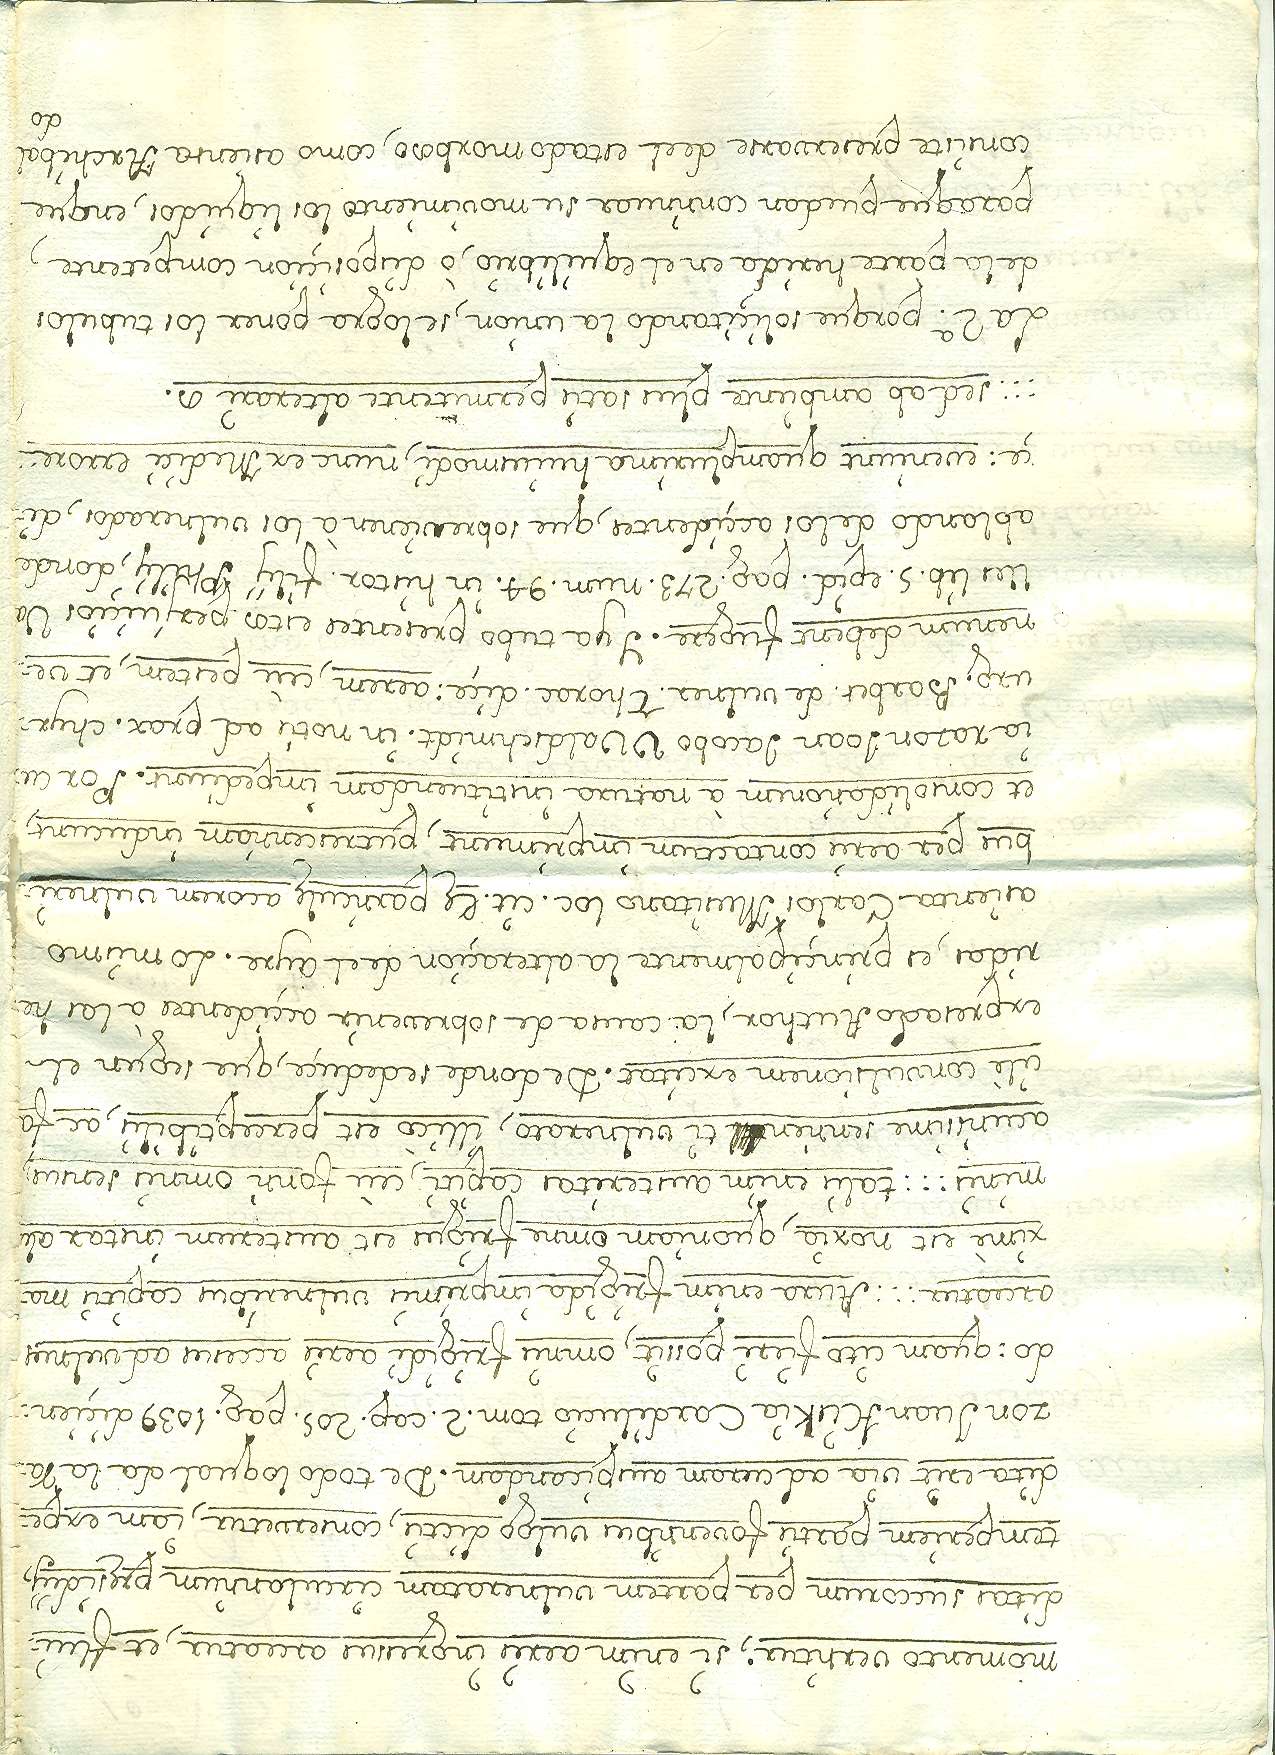 momento vertitur; si enim aeris ingressus arceatur, et flui=
ditas succorum per partem vulneratam circulantium præsidijs,
temperiem partis foventibus vulgo dictis, conservetur, iam expe=
dita erit via ad curam auspicandam. De todo loqual da la Ra=
zon Juan Hiskia Cardilucio tom. 2. cap. 205. pag. 1039 diçien=
do: quam cito fieri possit, omnis frigidi aeris accessus ad vulnus
arceatur :::: Aura enim frigida imprimis vulneribus capitis ma=
ximè est noxia, quoniam omne frigus est austerum instar alu
minis :::: talis enim austeritas capiti, ceu fonti omnis sensus,
acutissime sentienti vulnerato, illicò est perceptibilis, ac fa
cilè convulsionem excitat. De donde sededuçe, que segun el
expresado Author, la causa de sobrevenir acçidentes à las he=
ridas, es prinçipalmente la alteraçion deel ayre. Lo mismo
asienta Carlos Musitano loc. cit. Eę particulę acorem vulneri=
bus per aeris contactum imprimunt, putrescentiam inducunt,
et consolidationem à natura instituendam impediunt. Por cu=
ia razon Joan Jacobo Waldschmidt. in notis ad prax. chyr=
urg. Barbet. de vulner. Thorac. diçe: aerem, ceu pestem, et ve=
nenum debent fugere. I ya tubo presentes estos perjuiçios Va
lles lib. 5. epid. pag. 273. num. 94. in histor. filij Philly, donde
ablando de los acçidentes, que sobrevienen à los vulnerados, di=
çe: eveniunt quamplurima huiusmodi, nunc ex Medici errore=
:::: sed ab ambiente plus satis permitente alterari.
La 2.ª: porque soliçitando la union, se logra poner los tubulos
de la parte herida en el equilibrio, ò disposiçion competente,
paraque puedan continuar su movimiento los liquidos, enque
consiste preservarse deel estado morboso, como asienta Archibal
do